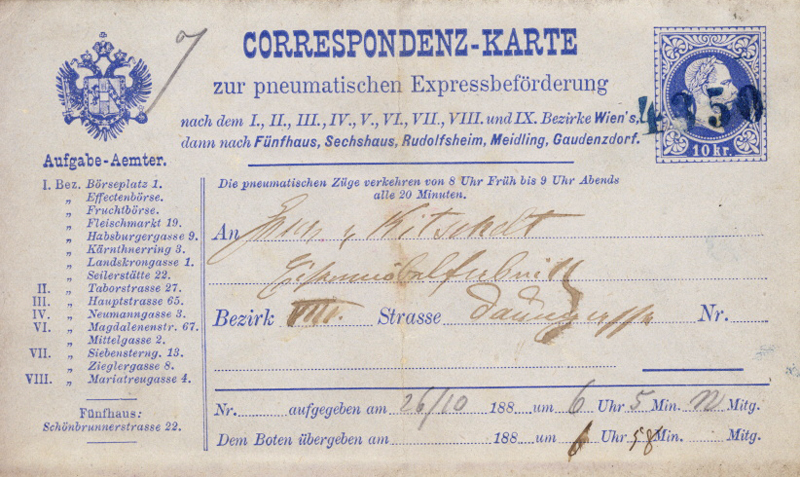 7
CORRESPONDENZ-KARTE
zur pneumatischen Expressbeförderung
nach dem I., II., III., IV., V., VI., VII., VIII. und IX. Bezirke Wien's,
dann nach Fünfhaus, Sechshaus, Rudolfsheim, Meidling, Gaudenzdorf.
10 kr.
4350
Aufgabe-Aemter.
I. Bez. Börseplatz 1.
„ Effectenbörse.
„ Fruchtbörse.
„ Fleischmarkt 19.
„ Habsburgergasse 9.
„ Kärnthnerring 3.
„ Landskrongasse 1.
„ Seilerstätte 22.
II. „ Taborstrasse 27.
III. „ Hauptstrasse 65.
IV. „ Neumanngasse 3.
VI. „ Magdalenenstr. 67.
„ Mittelgasse 2.
VII. „ Siebensterng. 13.
„ Zieglergasse 8.
VIII. „ Mariatreugasse 4.
Fünfhaus:
Schönbrunnerstrasse 22.
Die pneumatischen Züge verkehren von 8 Uhr Früh bis 9 Uhr Abends
alle 20 Minuten.
An Kitschelt
Eisenmöbelfabrik
Bezirk VIII. Strasse Nr.
Nr. aufgegeben am 26/10 188 um 6 Uhr 5 Min. N Mitg.
Dem Boten übergeben am 188 um 6 Uhr 58 Min. Mitg.